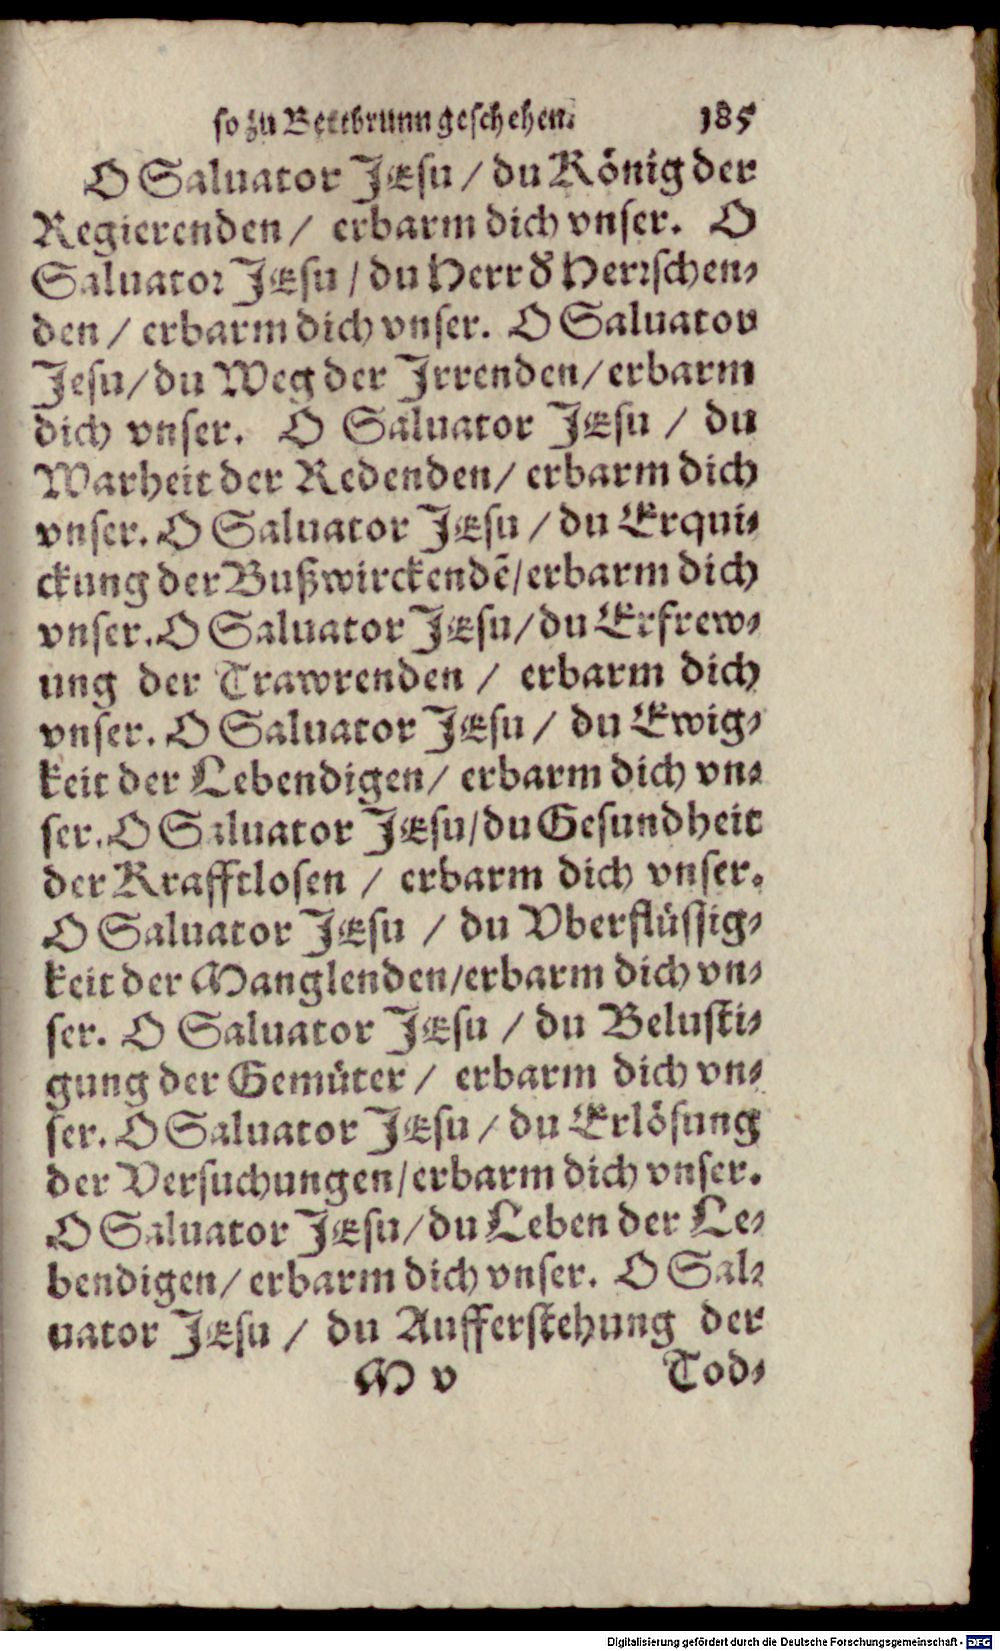 so zu Bettbrunn geschehen. 185
O Saluator JEsu / du König der
Regierenden / erbarm dich vnser. O
Saluator JEsu / du Herr d Herrschen-
den / erbarm dich vnser. O Saluator
Jesu / du Weg der Jrrenden / erbarm
dich vnser. O Saluator JEsu / du
Warheit der Redenden / erbarm dich
vnser. O Saluator JEsu / du Erqui-
ckung der Bußwirckendẽ / erbarm dich
vnser. O Saluator JEsu / du Erfrew-
ung der Trawrenden / erbarm dich
vnser. O Saluator JEsu / du Ewig-
keit der Lebendigen / erbarm dich vn-
ser. O Saluator JEsu / du Gesundheit
der Krafftlosen / erbarm dich vnser.
O Saluator JEsu / du Vberflüssig-
keit der Manglenden / erbarm dich vn-
ser. O Saluator JEsu / du Belusti-
gung der Gemüter / erbarm dich vn-
ser. O Saluator JEsu / du Erlösung
der Versuchungen / erbarm dich vnser.
O Saluator JEsu / du Leben der Le-
bendigen / erbarm dich vnser. O Sal-
uator JEsu / du Aufferstehung der
M v Tod-
Digitalisierung gefördert durch die Deutsche Forschungsgemeinschaft - DFG